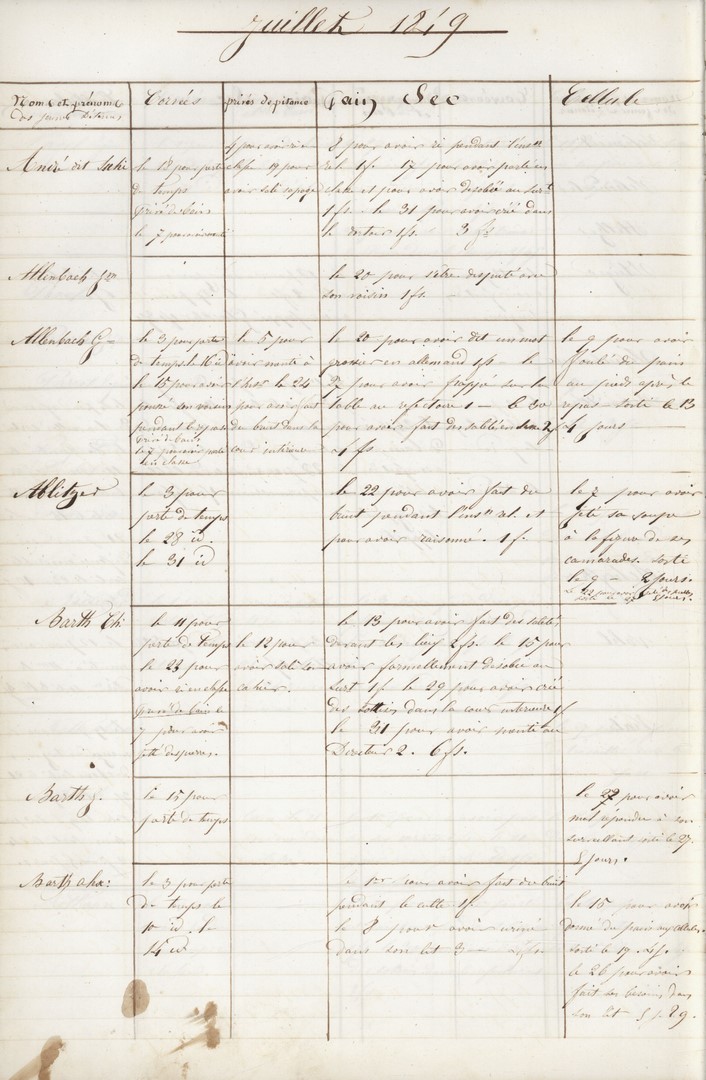 Juillet 1849
Noms et prénoms
des jeunes détenus
Corvées
privés de pitance
Pain Sec
Cellule
André dit
le 18 pour perte
de temps
privé de bain
le 7 pour
4 pour avoir ri en
classe 19 pour
avoir sali
8 pour avoir ri pendant l'inson
rel. 1 fs. 17 pour avoir parlé en
classe et pour avoir désobéi au survt
1 fs. le 31 pour avoir crié dans
le 1 fs. 3 fs
Allenbach
le 20 pour s'être disputé avec
son voisin 1 fs.
Allenbach G
le 3 pour perte
de temps le 16 id
le 15 pour avoir
poussé son voisin
pendant le repas
privé de bain
le 7 pour avoir parlé
en classe
le 5 pour
avoir monté à
le 24
pour avoir fait
du bruit dans la
cour intérieure
le 20 pour avoir dit un mot
grossier en allemand 1 fs le
27 pour avoir frappé sur la
table au réfectoire 1 — le 30
pour avoir fait des saletés en 2 fs
4 fs
le 9 pour avoir
foulé du pain
au pieds après le
repas sorti le 13
4 jours
Ablitzer
le 3 pour
perte de temps
le 28 id.
le 31 id
le 22 pour avoir fait du
bruit pendant l'inson rel. et
pour avoir raisonné. 1 f.
le 7 pour avoir
jeté sa soupe
à la figure de ses
camarades. sorti
le 9 — 2 jours.
le 22 pour avoir
sorti le 27 5 jours.
Barth Th
le 11 pour
perte de temps
le 23 pour
avoir ri en classe
privé de bain le
7 pour avoir
jetté des pierres.
le 12 pour
avoir sali son
cahier.
le 13 pour avoir fait des saletés
devant les 2 fs. le 15 pour
avoir formellement désobéi au
survt 1 f. le 29 pour avoir crié
des sottises dans la cour intérieure 1 f
le 31 pour avoir menti au
Directeur 2. 6 fs.
Barth J.
le 15 pour
perte de temps
le 22 pour avoir
mal répondu à son
surveillant sorti le 27.
5 jours.
Barth Alex:
le 3 pour perte
de temps le
10 id. le
14 id
le 1er pour avoir fait du bruit
pendant le culte 1 f.
le 8 pour avoir uriné
dans son lit 3 — 4 fs.
le 15 pour avoir
donné du pain aux cellules.
sorti le 19 4 fs.
le 26 pour avoir
fait ses besoins dans
son lit 5 j. 29.